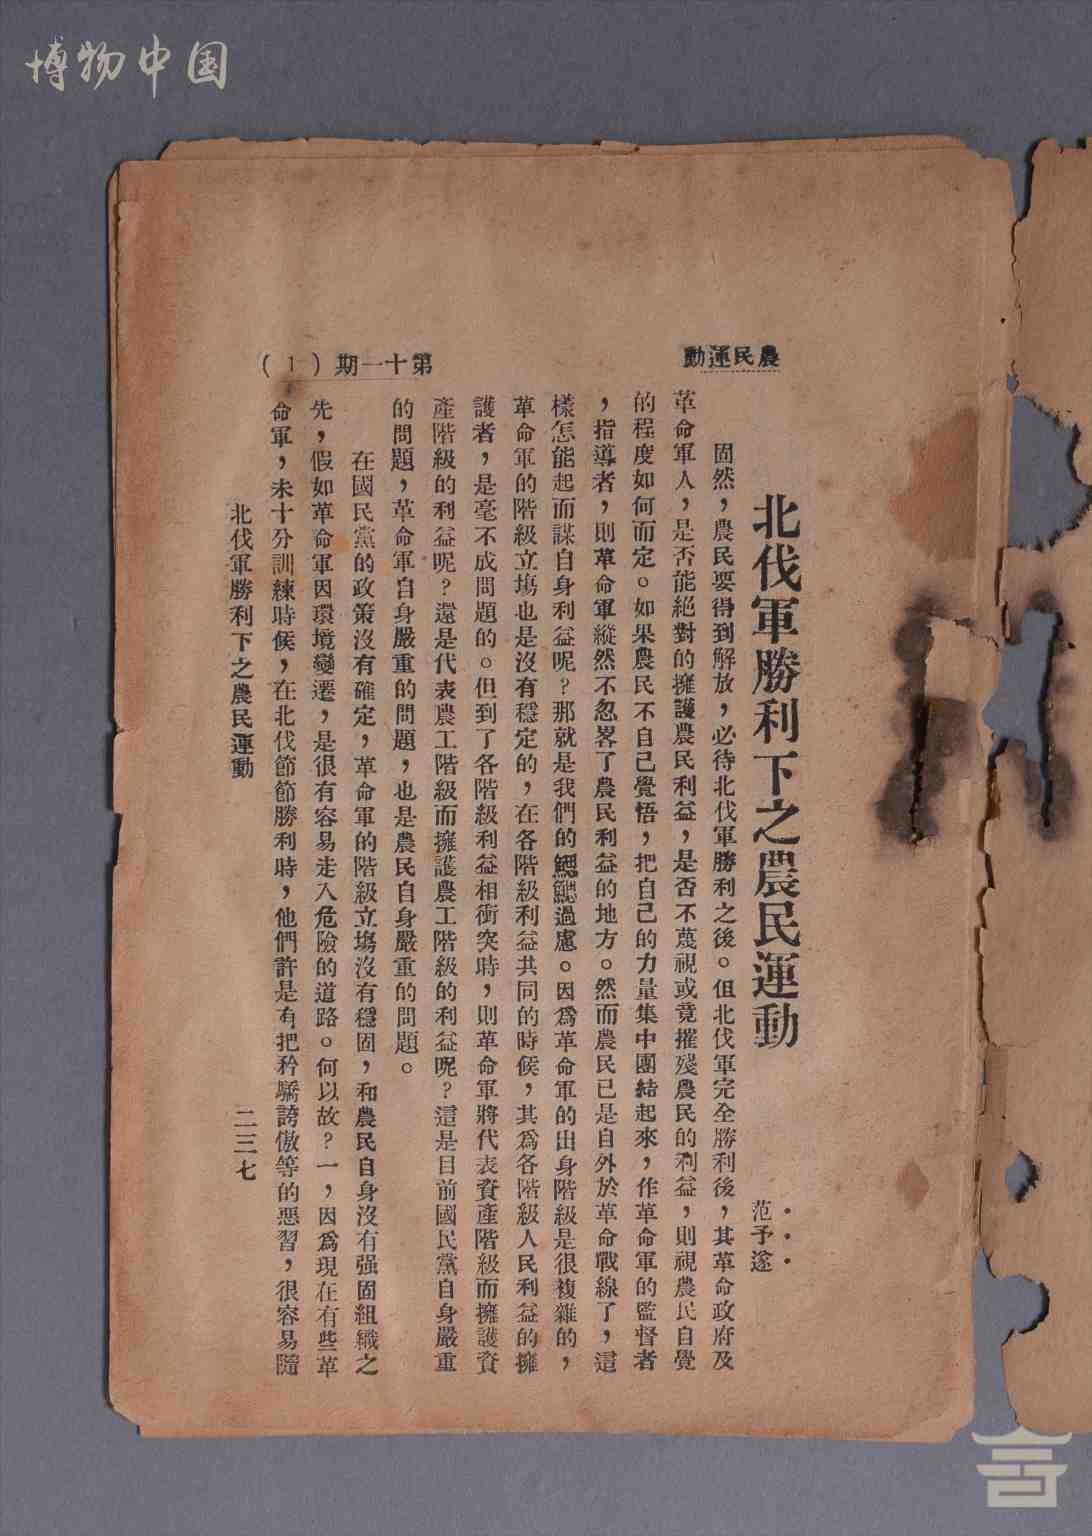 博物中国
農民運動
第十一期（1）
北伐軍勝利下之農民運動
范予遂
固然，農民要得到解放，必待北伐軍勝利之後。但北伐軍完全勝利後，其革命政府及
革命軍人，是否能絕對的擁護農民利益，是否不蔑視或竟摧殘農民的利益，則視農民自覺
的程度如何而定。如果農民不自己覺悟，把自己的力量集中團結起來，作革命軍的監督者
，指導者，則革命軍縱然不忽畧了農民利益的地方。然而農民已是自外於革命戰線了，這
樣怎能起而謀自身利益呢？那就是我們的鰓鰓過慮。因爲革命軍的出身階級是很複雜的，
革命軍的階級立塲也是沒有穩定的，在各階級利益共同的時候，其爲各階級人民利益的擁
護者，是毫不成問題的。但到了各階級利益相衝突時，則革命軍將代表資產階級而擁護資
產階級的利益呢？還是代表農工階級而擁護農工階級的利益呢？這是目前國民黨自身嚴重
的問題，革命軍自身嚴重的問題，也是農民自身嚴重的問題。
在國民黨的政策沒有確定，革命軍的階級立塲沒有穩固，和農民自身沒有强固組織之
先，假如革命軍因環境變遷，是很有容易走入危險的道路。何以故？一，因爲現在有些革
命軍，未十分訓練時候，在北伐節節勝利時，他們許是有把矜驕誇傲等的惡習，很容易隨
北伐軍勝利下之農民運動
二三七